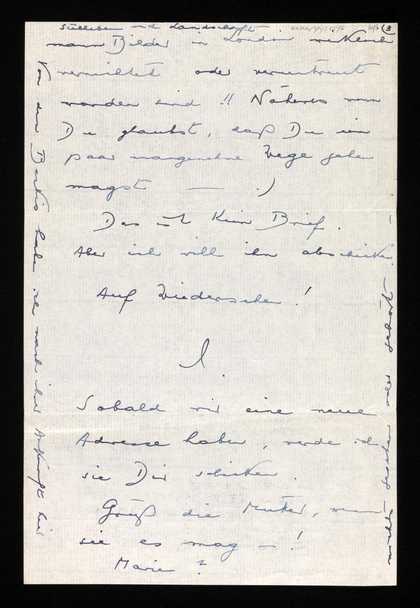 Stilleben und Landschaft
mann Bilder in London
vermittelt oder veruntreut
worden sind!! Näheres wenn
Du glaubst, daß Du ein
paar unangenehme Wege gehen
magst — .)
Das ist kein Brief.
Aber ich will ihn abschicken.
Auf Wiedersehen!
I.
Sobald wir eine neue
Adresse haben, werde ich
sie Dir schicken.
Grüß die Mutter, wenn
sie es mag —!
Marie?
Von den habe ich nach ihrer Ankunft hier